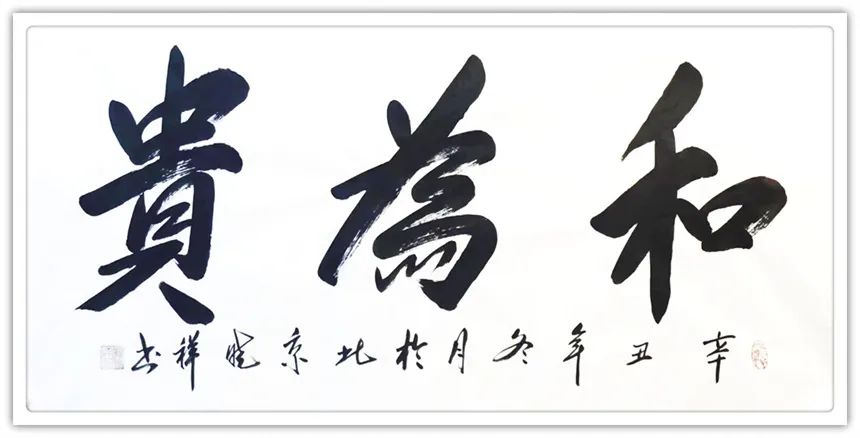 和為貴
辛丑年冬月於北京晓祥书